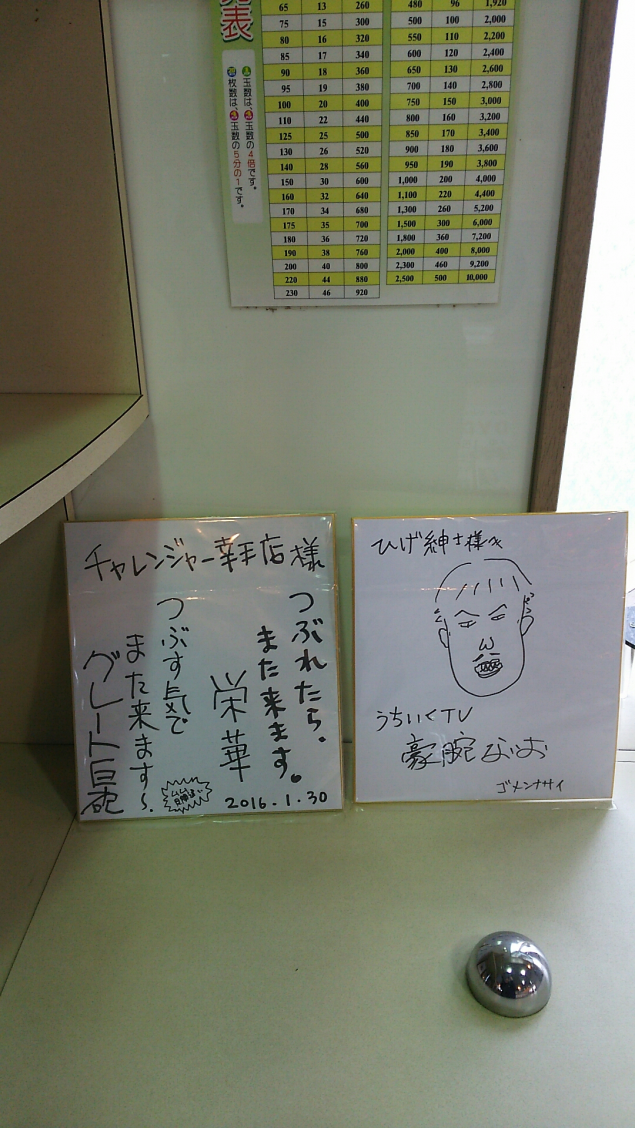 表
65 13 260
75 15 300
80 16 320
85 17 340
90 18 360
95 19 380
100 20 400
110 22 440
125 25 500
130 26 520
140 28 560
150 30 600
160 32 640
170 34 680
175 35 700
180 36 720
190 38 760
200 40 800
220 44 880
230 46 920
480 96 1,920
500 100 2,000
550 110 2,200
600 120 2,400
650 130 2,600
700 140 2,800
750 150 3,000
800 160 3,200
850 170 3,400
900 180 3,600
950 190 3,800
1,000 200 4,000
1,100 220 4,400
1,300 260 5,200
1,500 300 6,000
1,800 360 7,200
2,000 400 8,000
2,300 460 9,200
2,500 500 10,000
玉数は、玉数の4倍です。
枚数は、玉数の5分の1です。
チャレンジャー幸手店様
つぶれたら、
また来ます。
栄華
つぶす気で
また来ます〜、
グレート巨砲
2016.1.30
ひげ紳士様へ
うちいくTV
豪腕なお
ゴメンナサイ